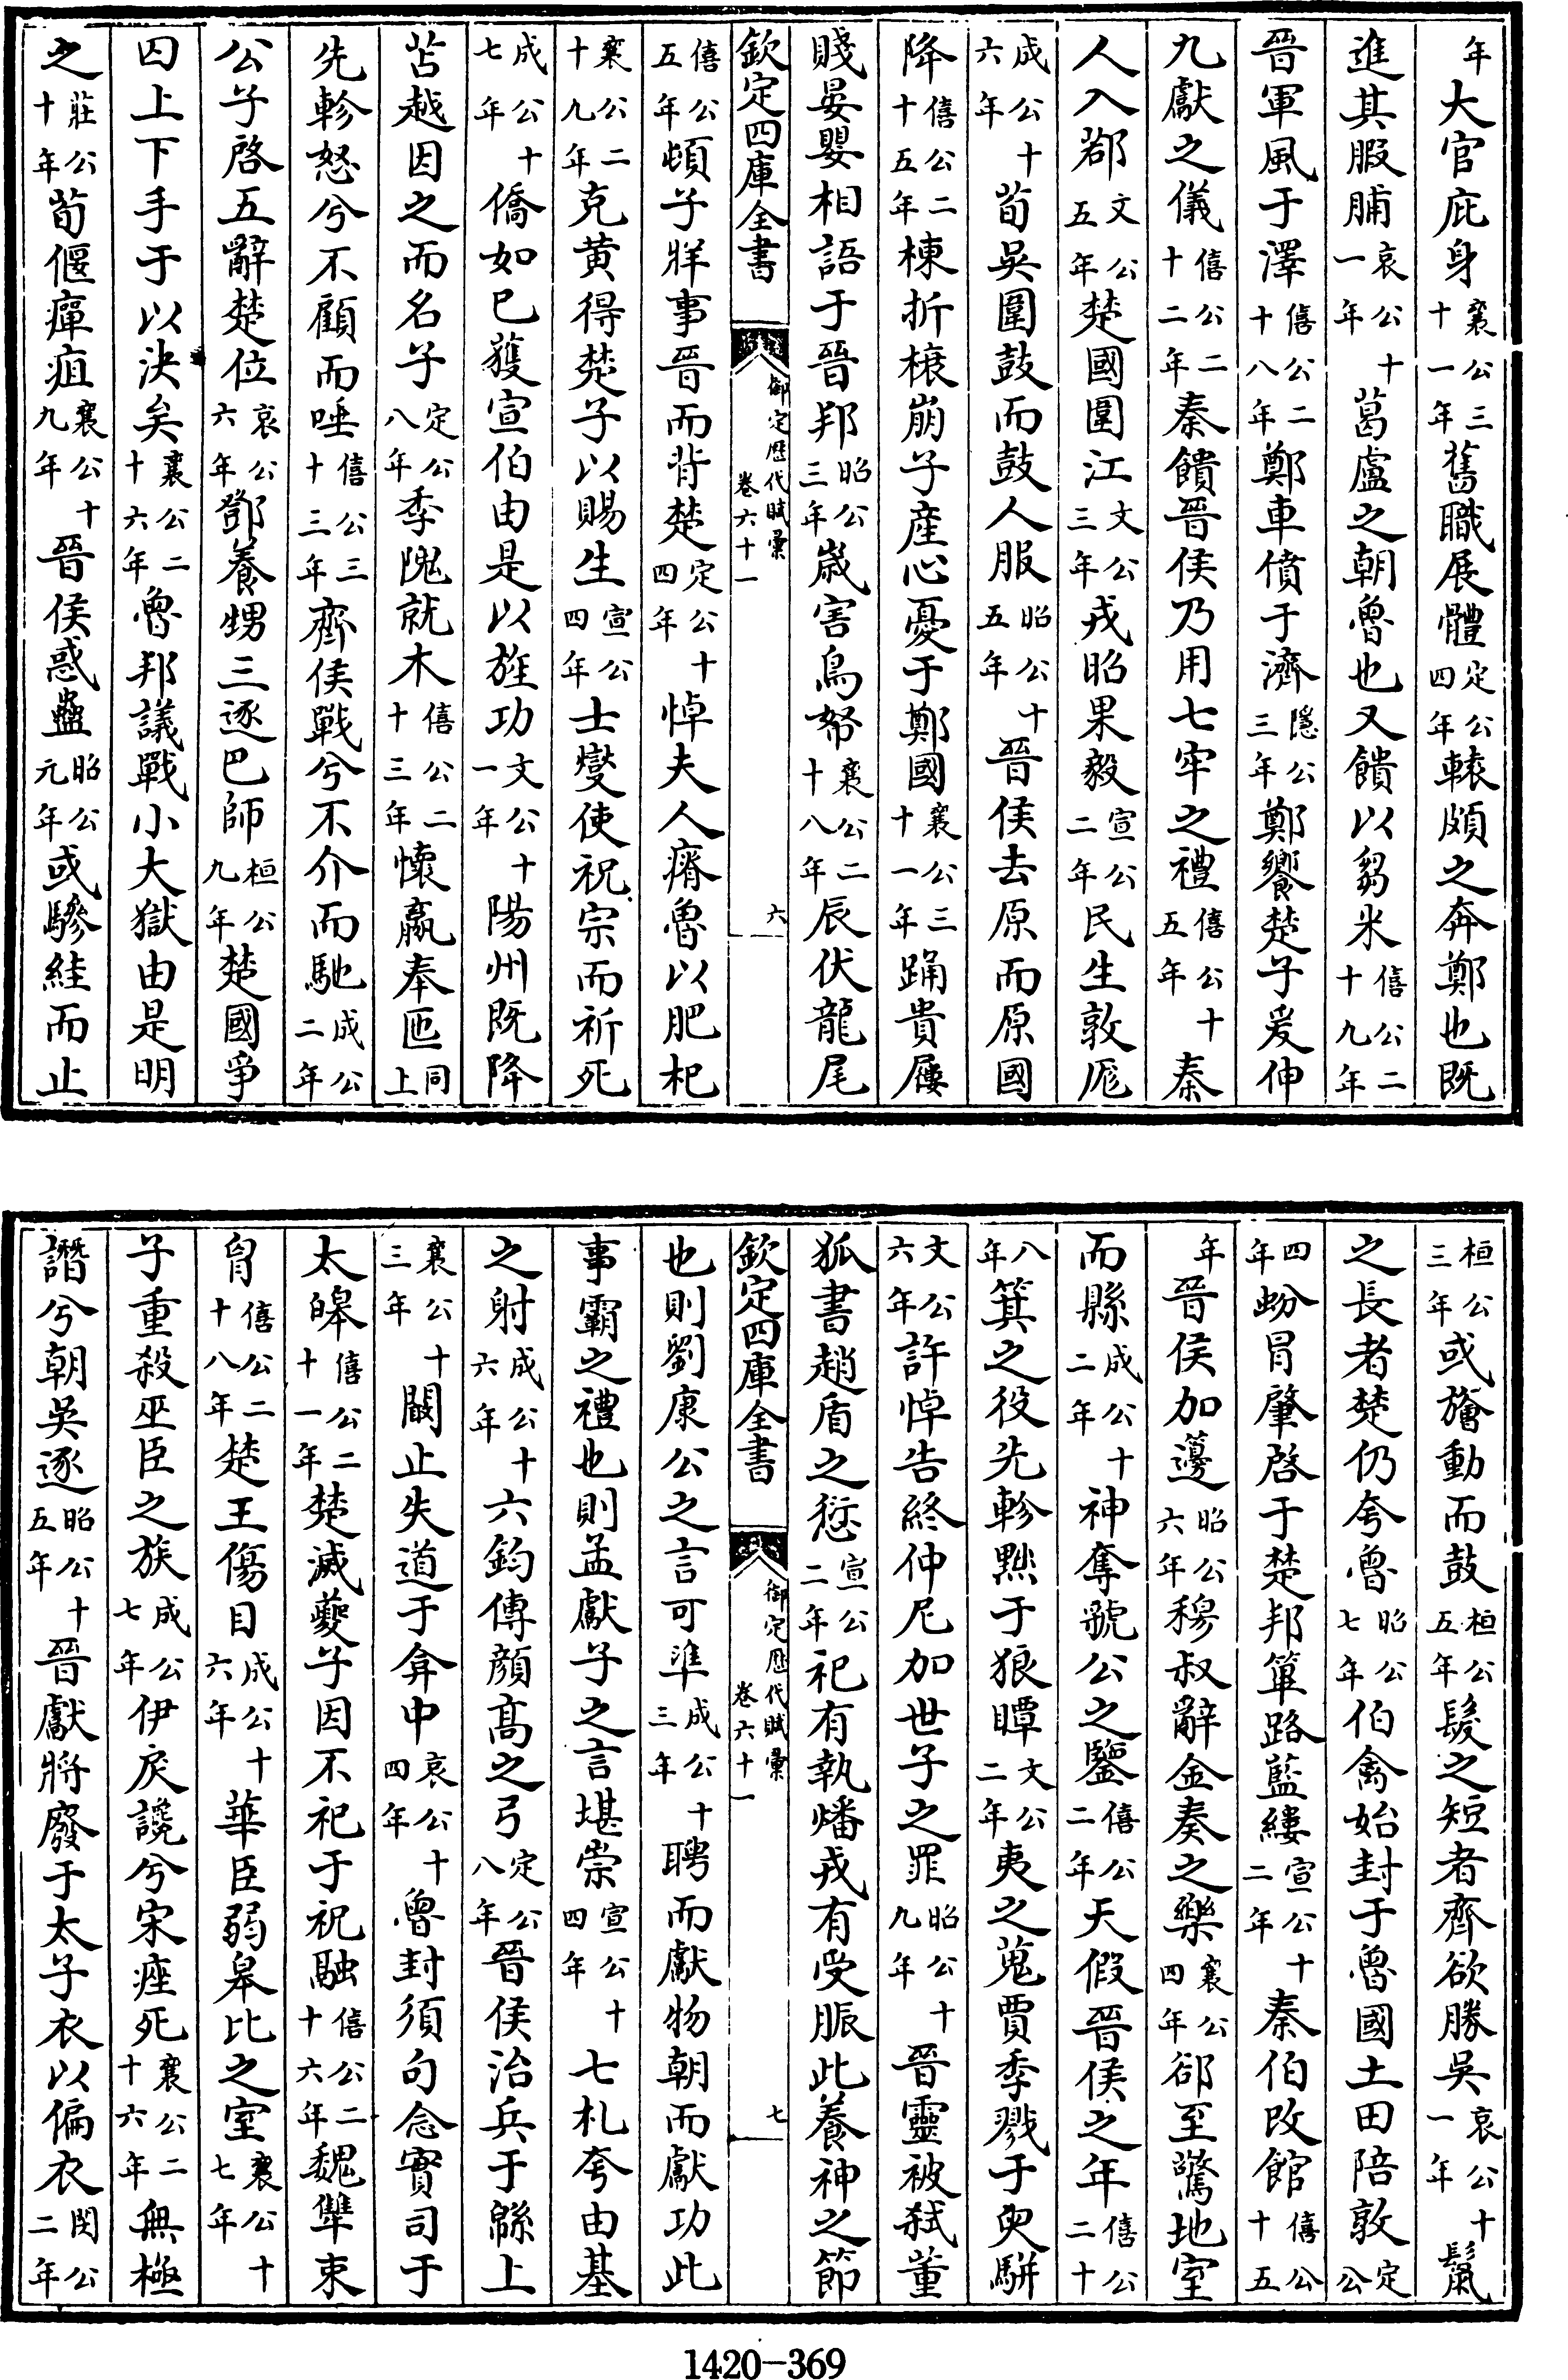 年大官庇身襄公三十一年舊職展體定公四年轅頗之奔鄭也既
進其腶脯哀公十一年葛盧之朝魯也又饋以芻米僖公二十九年
晉軍風于澤僖公二十八年鄭車僨于濟隱公三年鄭饗楚子爰伸
九獻之儀僖公二十二年秦饋晉侯乃用七牢之禮僖公十五年秦
人入鄀文公五年楚國圍江文公三年戎昭果毅宣公二年民生敦厖
成公十六年荀吳圍鼓而鼓人服昭公十五年晉侯去原而原國
降僖公二十五年棟折榱崩子產心憂于鄭國襄公三十一年踊貴屨
賤晏嬰相語于晉邦昭公三年嵗害鳥帑襄公二十八年辰伏龍尾
欽定四庫全書
御定歷代賦彙
卷六十一
六
僖公五年頓子牂事晉而背楚定公十四年悼夫人瘠魯以肥杞
襄公二十九年克黃得楚子以賜生宣公四年士燮使祝宗而祈死
成公十七年僑如巳獲宣伯由是以旌功文公十一年陽州既降
苫越因之而名子定公八年季隗就木僖公二十三年懷嬴奉匜同上
先軫怒兮不顧而唾僖公三十三年齊侯戰兮不介而馳成公二年
公子啓五辭楚位哀公六年鄧養甥三逐巴師桓公九年楚國爭
囚上下手于以決矣襄公二十六年魯邦議戰小大獄由是明
之莊公十年荀偃癉疽襄公十九年晉侯惑蠱昭公元年或驂絓而止
桓公三年或旝動而鼓桓公五年髮之短者齊欲勝吳哀公十一年鬛
之長者楚仍夸魯昭公七年伯禽始封于魯國土田陪敦定公
四年蚡冒肇啓于楚邦篳路藍縷宣公十二年秦伯改館僖公十五
年晉侯加籩昭公六年穆叔辭金奏之樂襄公四年郤至驚地室
而縣成公十二年神奪虢公之鑒僖公二年天假晉侯之年僖公二十
八年箕之役先軫黜于狼瞫文公二年夷之蒐賈季戮于臾駢
文公六年許悼告終仲尼加世子之罪昭公十九年晉靈被弑董
狐書趙盾之愆宣公二年祀有執燔戎有受脤此養神之節
欽定四庫全書
御定歷代賦彙
卷六十一
七
也則劉康公之言可準成公十三年聘而獻物朝而獻功此
事霸之禮也則孟獻子之言堪崇宣公十四年七札夸由基
之射成公十六年六鈞傳顏高之弓定公八年晉侯治兵于緜上
襄公十三年闞止失道于弇中哀公十四年魯封須句念實司于
太皥僖公二十一年楚滅夔子因不祀于祝融僖公二十六年魏犨束
胷僖公二十八年楚王傷目成公十六年華臣弱皋比之室襄公十七年
子重殺巫臣之族成公七年伊戾讒兮宋痤死襄公二十六年無極
譖兮朝吳逐昭公十五年晉獻將廢于太子衣以偏衣閔公二年
1420-369